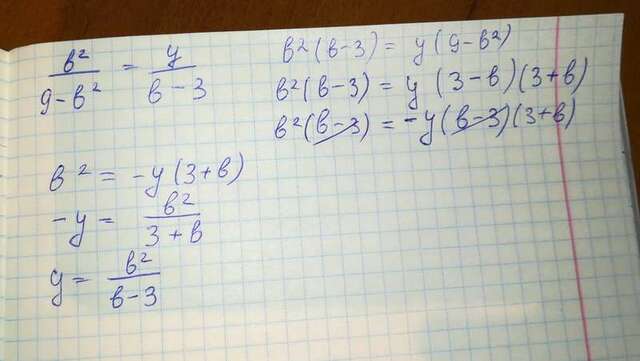 b²/(9-b²) = y/(b-3)
b²(b-3) = y(9-b²)
b²(b-3) = y (3-b)(3+b)
b²(b-3) = -y(b-3)(3+b)
b² = -y(3+b)
-y = b²/(3+b)
y = b²/(b-3)